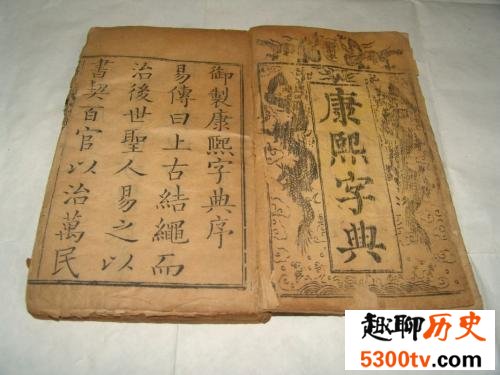 康熙字典
御製康熙字典序
易傳曰上古結繩而
治後世聖人易之以
書契百官以治萬民
趣聊历史
5300tv.com